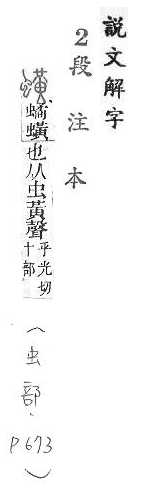 說文解字
2段注本
蟥 𧑐蟥也从虫黃聲
乎光切
十部
(虫部、P673)